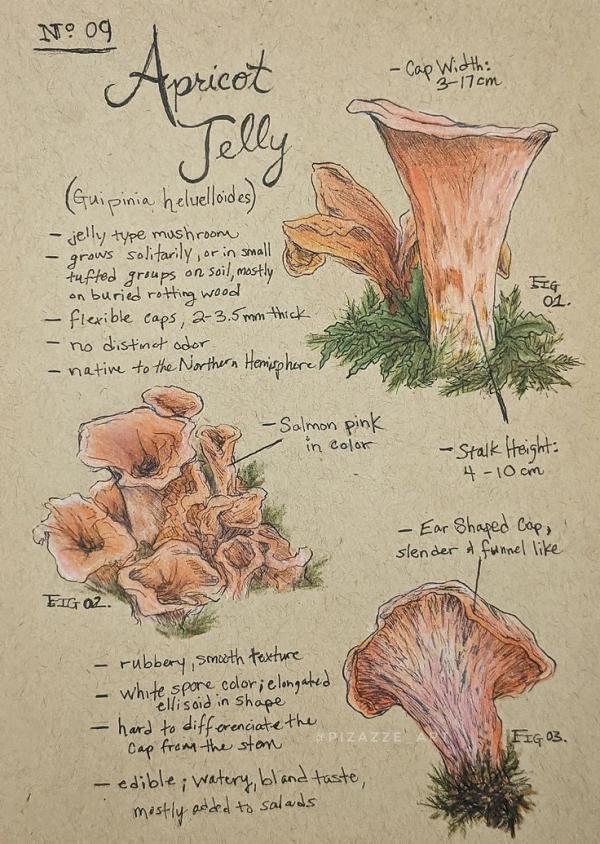 Nº 09
Apricot
Jelly
(Guipinia heluelloides)
- jelly type mushroom
- grows solitarily, or in small
tufted groups on soil, mostly
on buried rotting wood
- flexible caps, 2-3.5mm thick
- no distinct odor
- native to the Northern Hemisphere
- Cap Width:
3-17cm
FIG
01.
- Stalk Height:
4 - 10 cm
- Salmon pink
in color
FIG 02.
- Ear Shaped Cap,
slender & funnel like
FIG 03.
- rubbery, smooth texture
- white spore color; elongated
ellisoid in shape
- hard to differenciate the
cap from the stem
- edible; watery, bland taste,
mostly added to salads
@PIZAZZE_ART